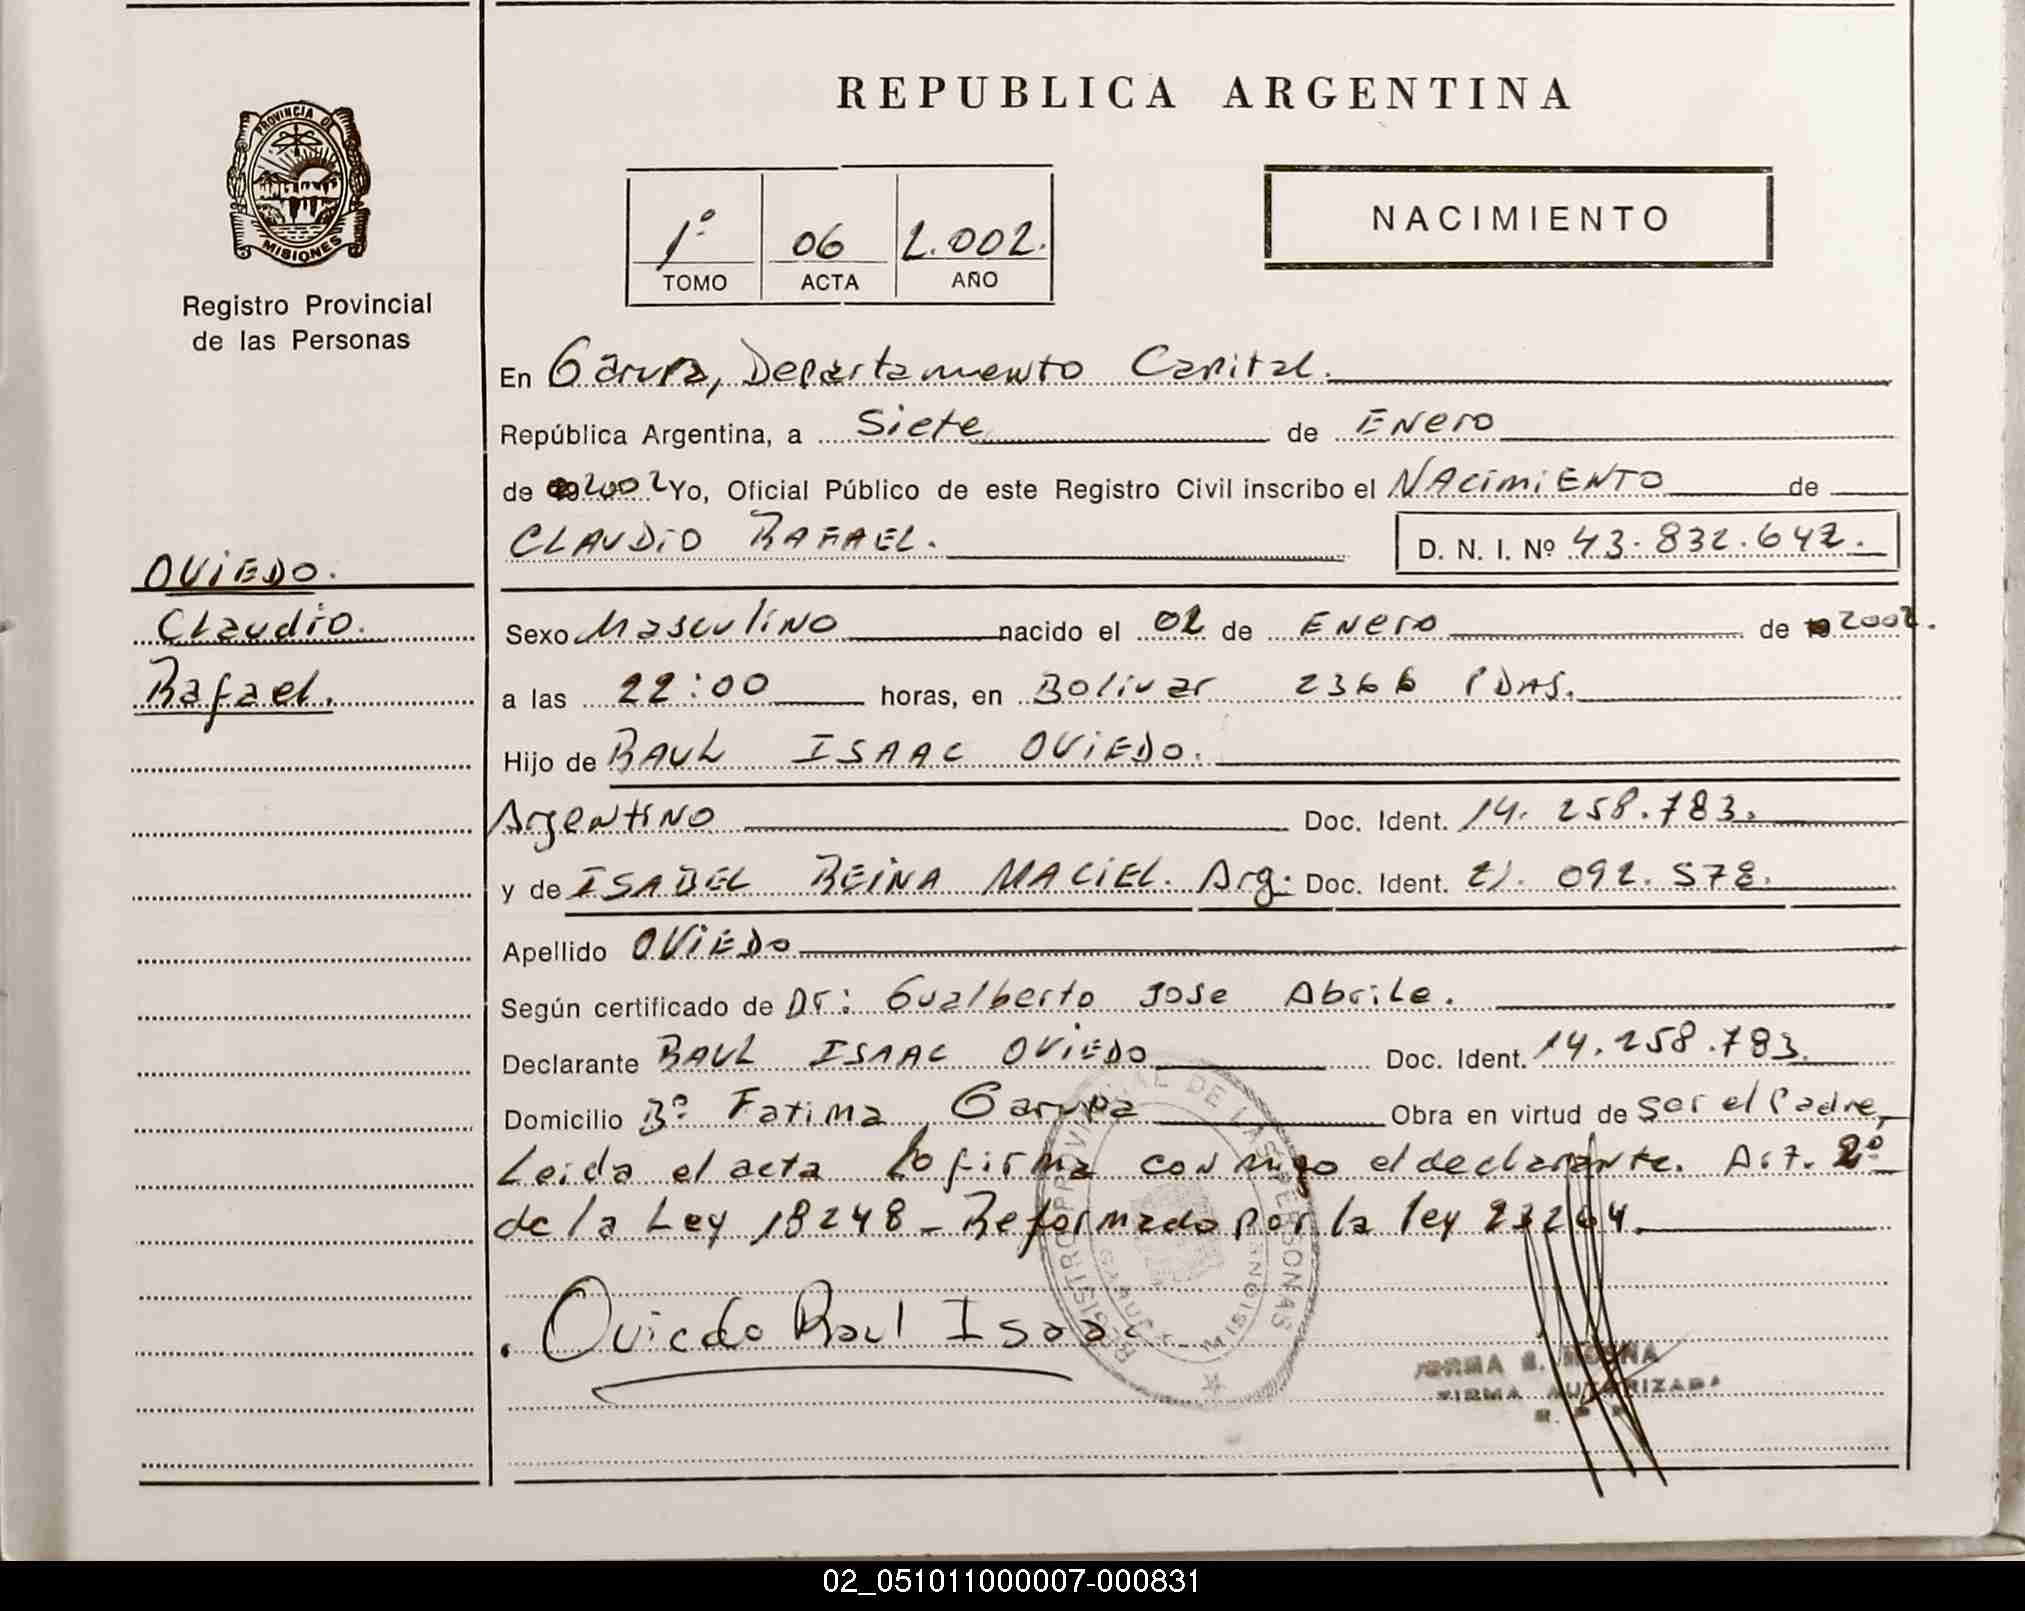 REPUBLICA ARGENTINA
PROVINCIA DE
MISIONES
Registro Provincial
de las Personas
1º 06 2.002.
TOMO ACTA AÑO
NACIMIENTO
En Garupa, Departamento Capital.
República Argentina, a Siete de Enero
de 2002 Yo, Oficial Público de este Registro Civil inscribo el NAcimiENTO de
CLAUDiO RAFAEL. D. N. I. Nº 43.832.642.
OViEDO.
Claudio.
Rafael.
Sexo Masculino nacido el 02 de Enero de 2002.
a las 22:00 horas, en Bolivar 2366 PDAS.
Hijo de RAUL ISAAC OViEDO.
Argentino Doc. Ident. 14.258.783.
y de ISABEL REiNA MACiEL. Arg. Doc. Ident. 21.092.578.
Apellido OViEDO
Según certificado de Dr: Gualberto Jose Abrile.
Declarante RAUL ISAAC OViEDO Doc. Ident. 14.258.783.
Domicilio Bº Fatima Garupa Obra en virtud de ser el Padre,
Leida el acta la firma conmigo el declarante. Art. 2º
de la Ley 18248 - Reformado por la ley 23264.
Oviedo Raul Isaac
REGISTRO PROVINCIAL DE LAS PERSONAS
MISIONES
FIRMA AUTORIZADA
02_051011000007-000831